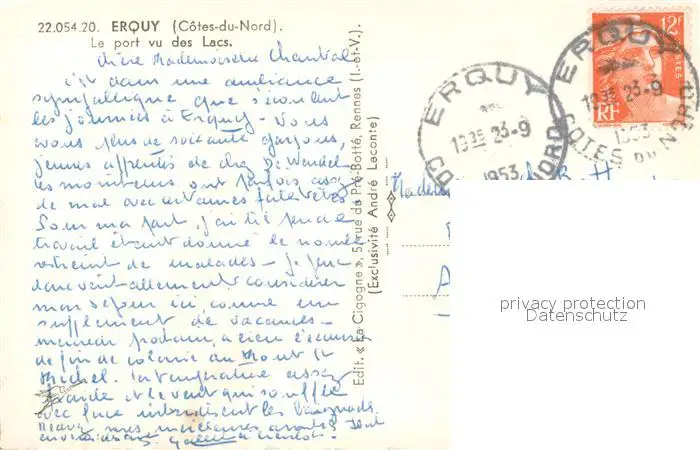 22.054.20. ERQUY (Côtes-du-Nord).
Le port vu des Lacs.
Chère Mademoiselle Chantal
C'est dans une ambiance
sympathique que s'écoulent
les journées à Erquy - Nous
avons plus de soixante garçons,
jeunes apprentis de chez De Wendel
les moniteurs ont parfois assez
de mal avec certaines fortes têtes
Pour ma part, j'ai très peu de
travail étant donné le nombre
restreint de malades - je peux
donc éventuellement considérer
mon séjour ici, comme un
supplément de vacances -
de fin de colonie au Mont St
Michel. La température assez
froide et le vent qui souffle
avec force interdisent les baignades.
mes meilleures amitiés
Edit. « La Cigogne », 5, rue du Pré-Botté, Rennes (I.-et-V.)
(Exclusivité André Leconte)
ERQUY
1935 23-9
1953
CÔTES DU NORD
12F
POSTES
RF
ERQUY
1935 23-9
1953
CÔTES DU NORD
privacy protection
Datenschutz